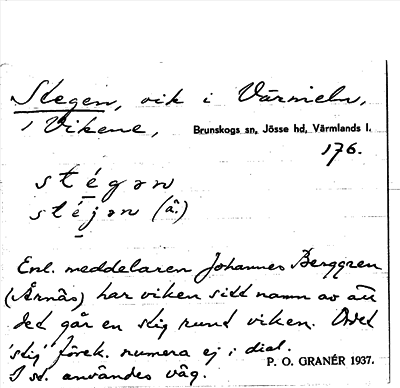 Stegen, vik i Värmeln,
i Vikene, Brunskogs sn, Jösse hd, Värmlands l.
176.
stégən
stéjən (ä.)
Enl. meddelaren Johannes Berggren
(Årnäs) har viken sitt namn av att
det går en stig rund viken. Ordet
'stig' förek. numera ej i dial.
I st. användes väg. P. O. GRANÉR 1937.